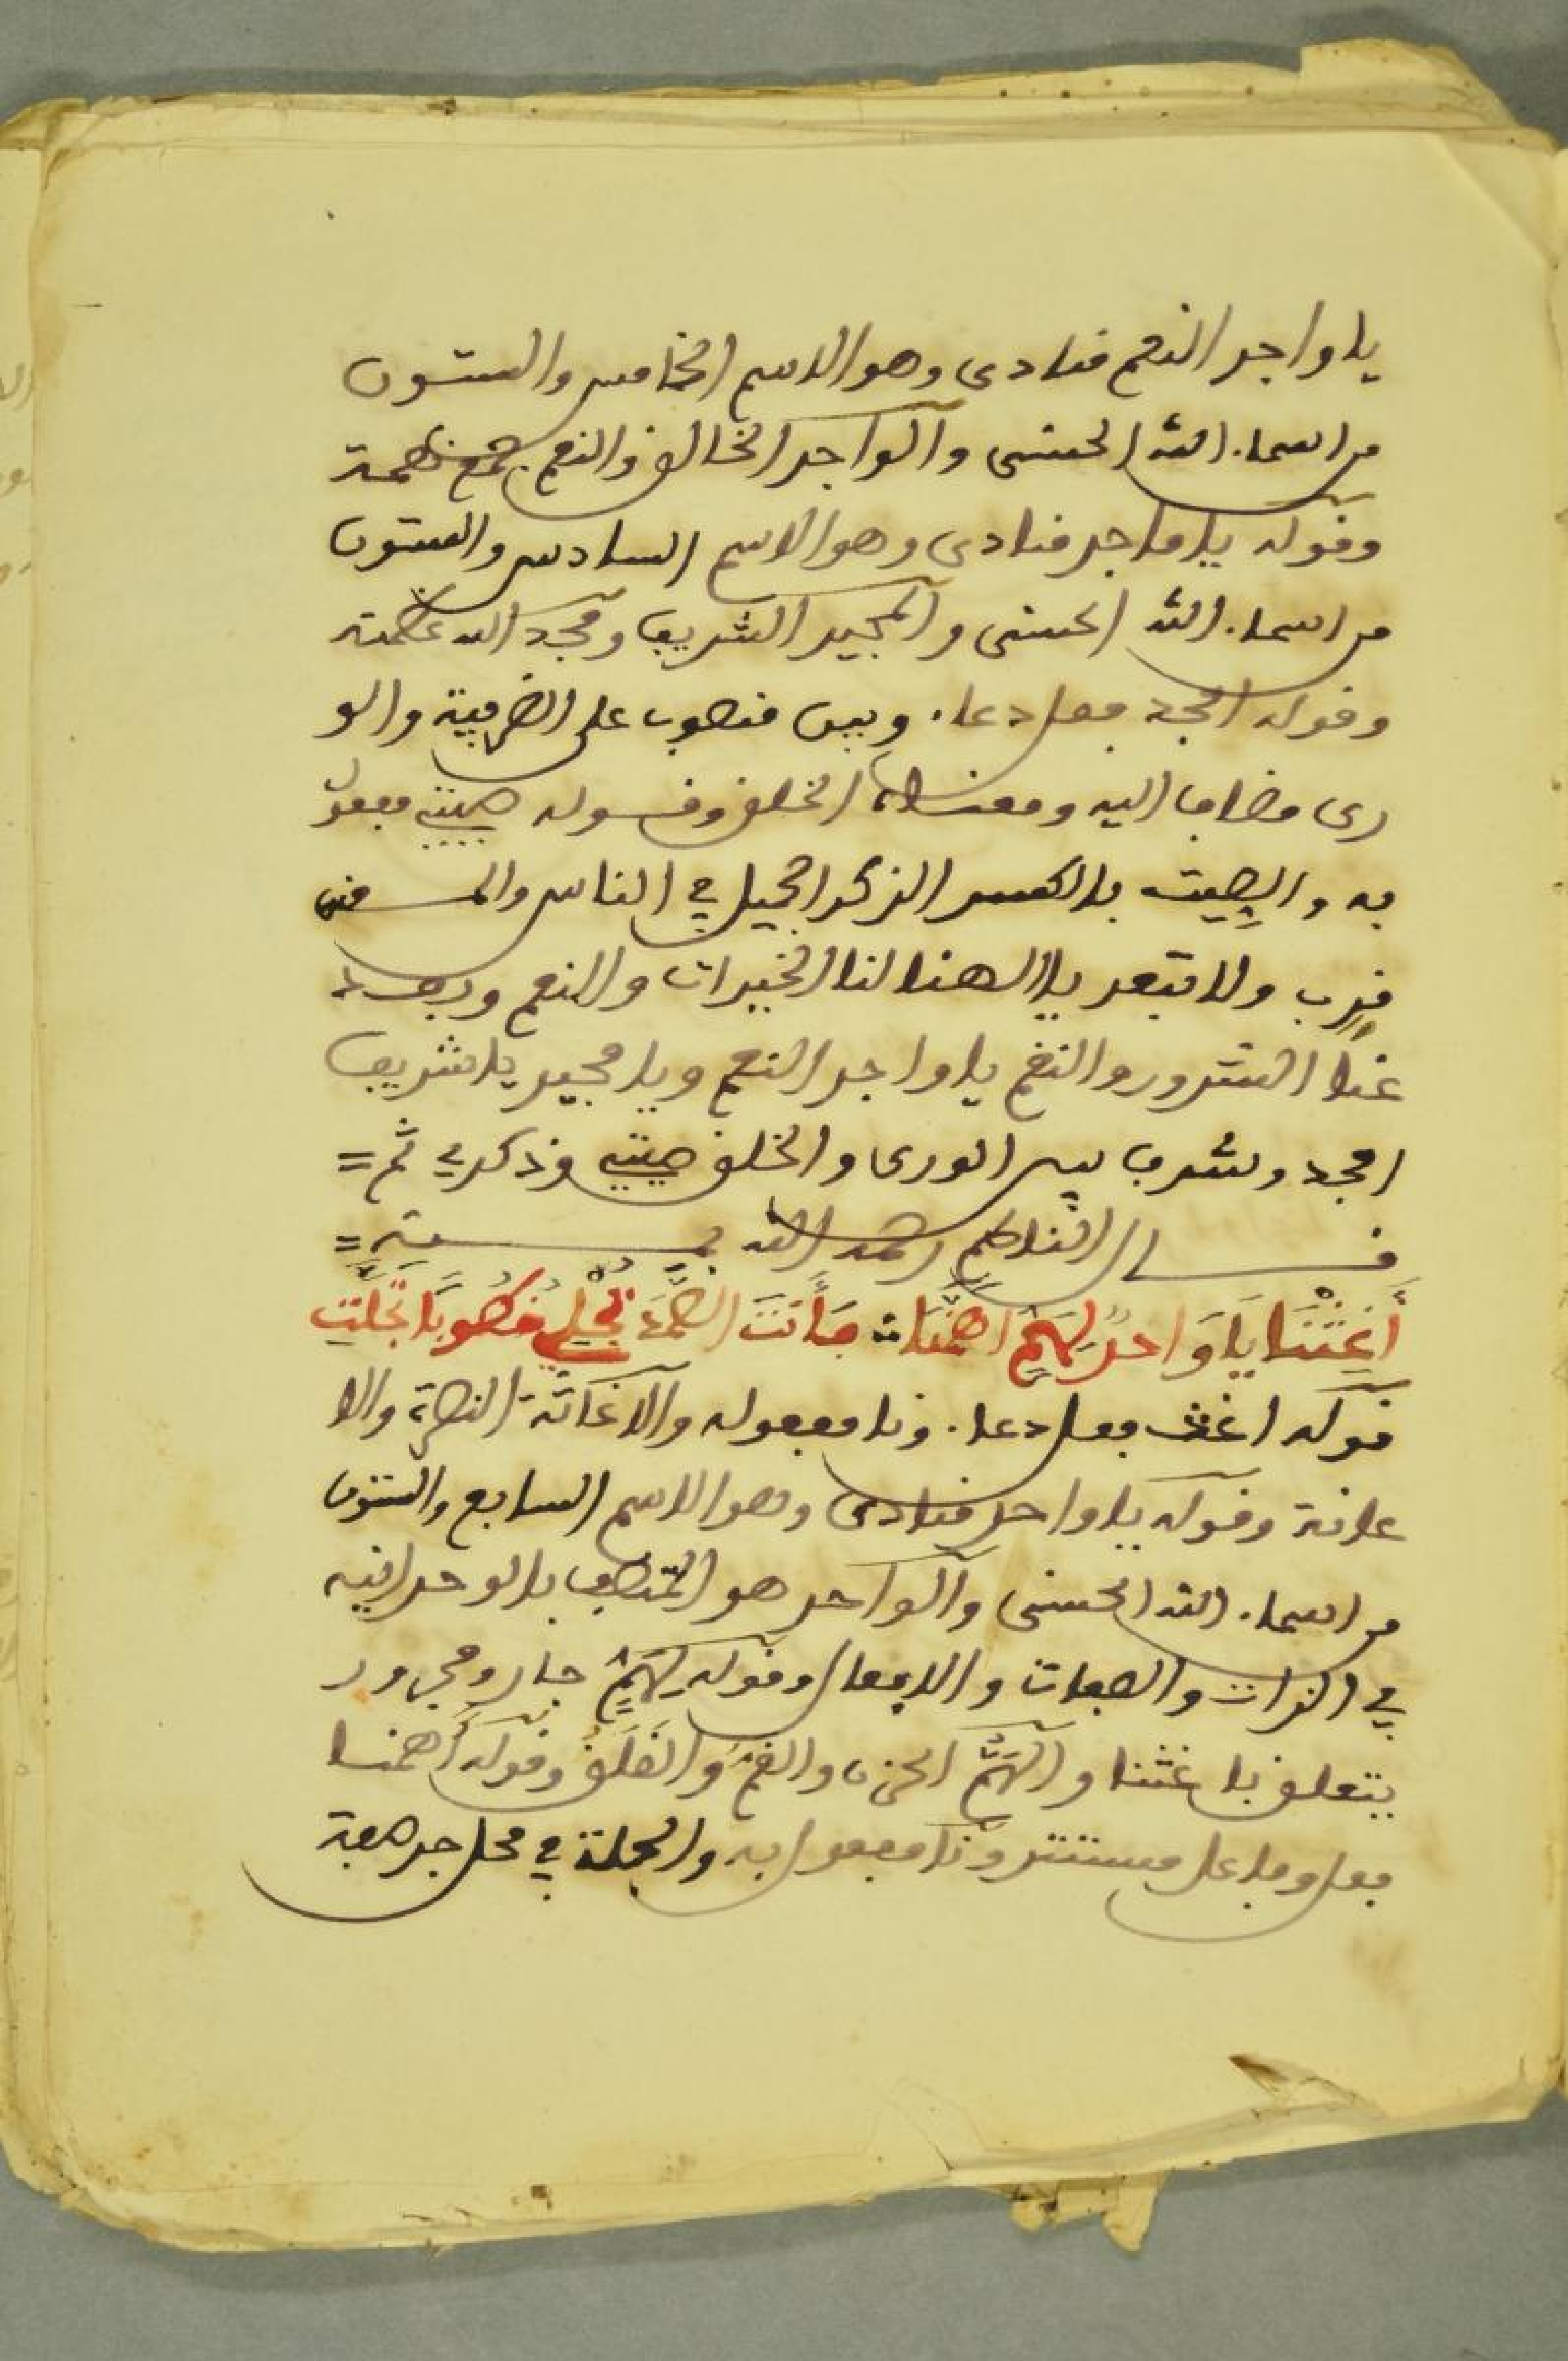 يا واجد النعم منادى وهو الاسم الخامس والستون
من اسماء الله الحسنى والواجد الخالق والنعم جمع نعمة
وقوله يا ماجد منادى وهو الاسم السادس والستون
من اسماء الله الحسنى والمجيد الشريف ومجد الله عظمته
وقوله امجد فعل دعاء وبين منصوب على الظرفية والو
رى مضاف اليه ومعناه الخلق وقوله صيتي مفعول
به والصِيت بالكسر الذكر الجميل في الناس والمعنى
قرب ولا تبعد يا الاهنا لنا الخيرات والنعم وبعد
عنا الشرور والنقم يا واجد النعم ويا مجيد يا شريف
امجد وشرف بين الورى والخلق صيتي وذكري ثم =
قال الناظم رحمه الله
أَغِثْنَا يَا وَاحدُ لِهَمٍّ اهَمَّنَا فَأَنتَ الصَّمَدُ تُجْلِي خطُوبًا تجَلَّتِ
قوله اغث فعل دعاء ونا مفعوله والاغاثة النصرة والا
عانة وقوله يا واحد منادى وهو الاسم السابع والستون
من اسماء الله الحسنى والواحد هو المتصف بالوحدانية
في الذات والصفات والافعال وقوله لِهَمٍّ جار ومجرور
يتعلق باغثنا والهَمُّ الحزن والغم وَالقَلَقُ وقوله أهمنا
فعل وفاعل مستتر ونا مفعول به والجملة في محل جر صفة